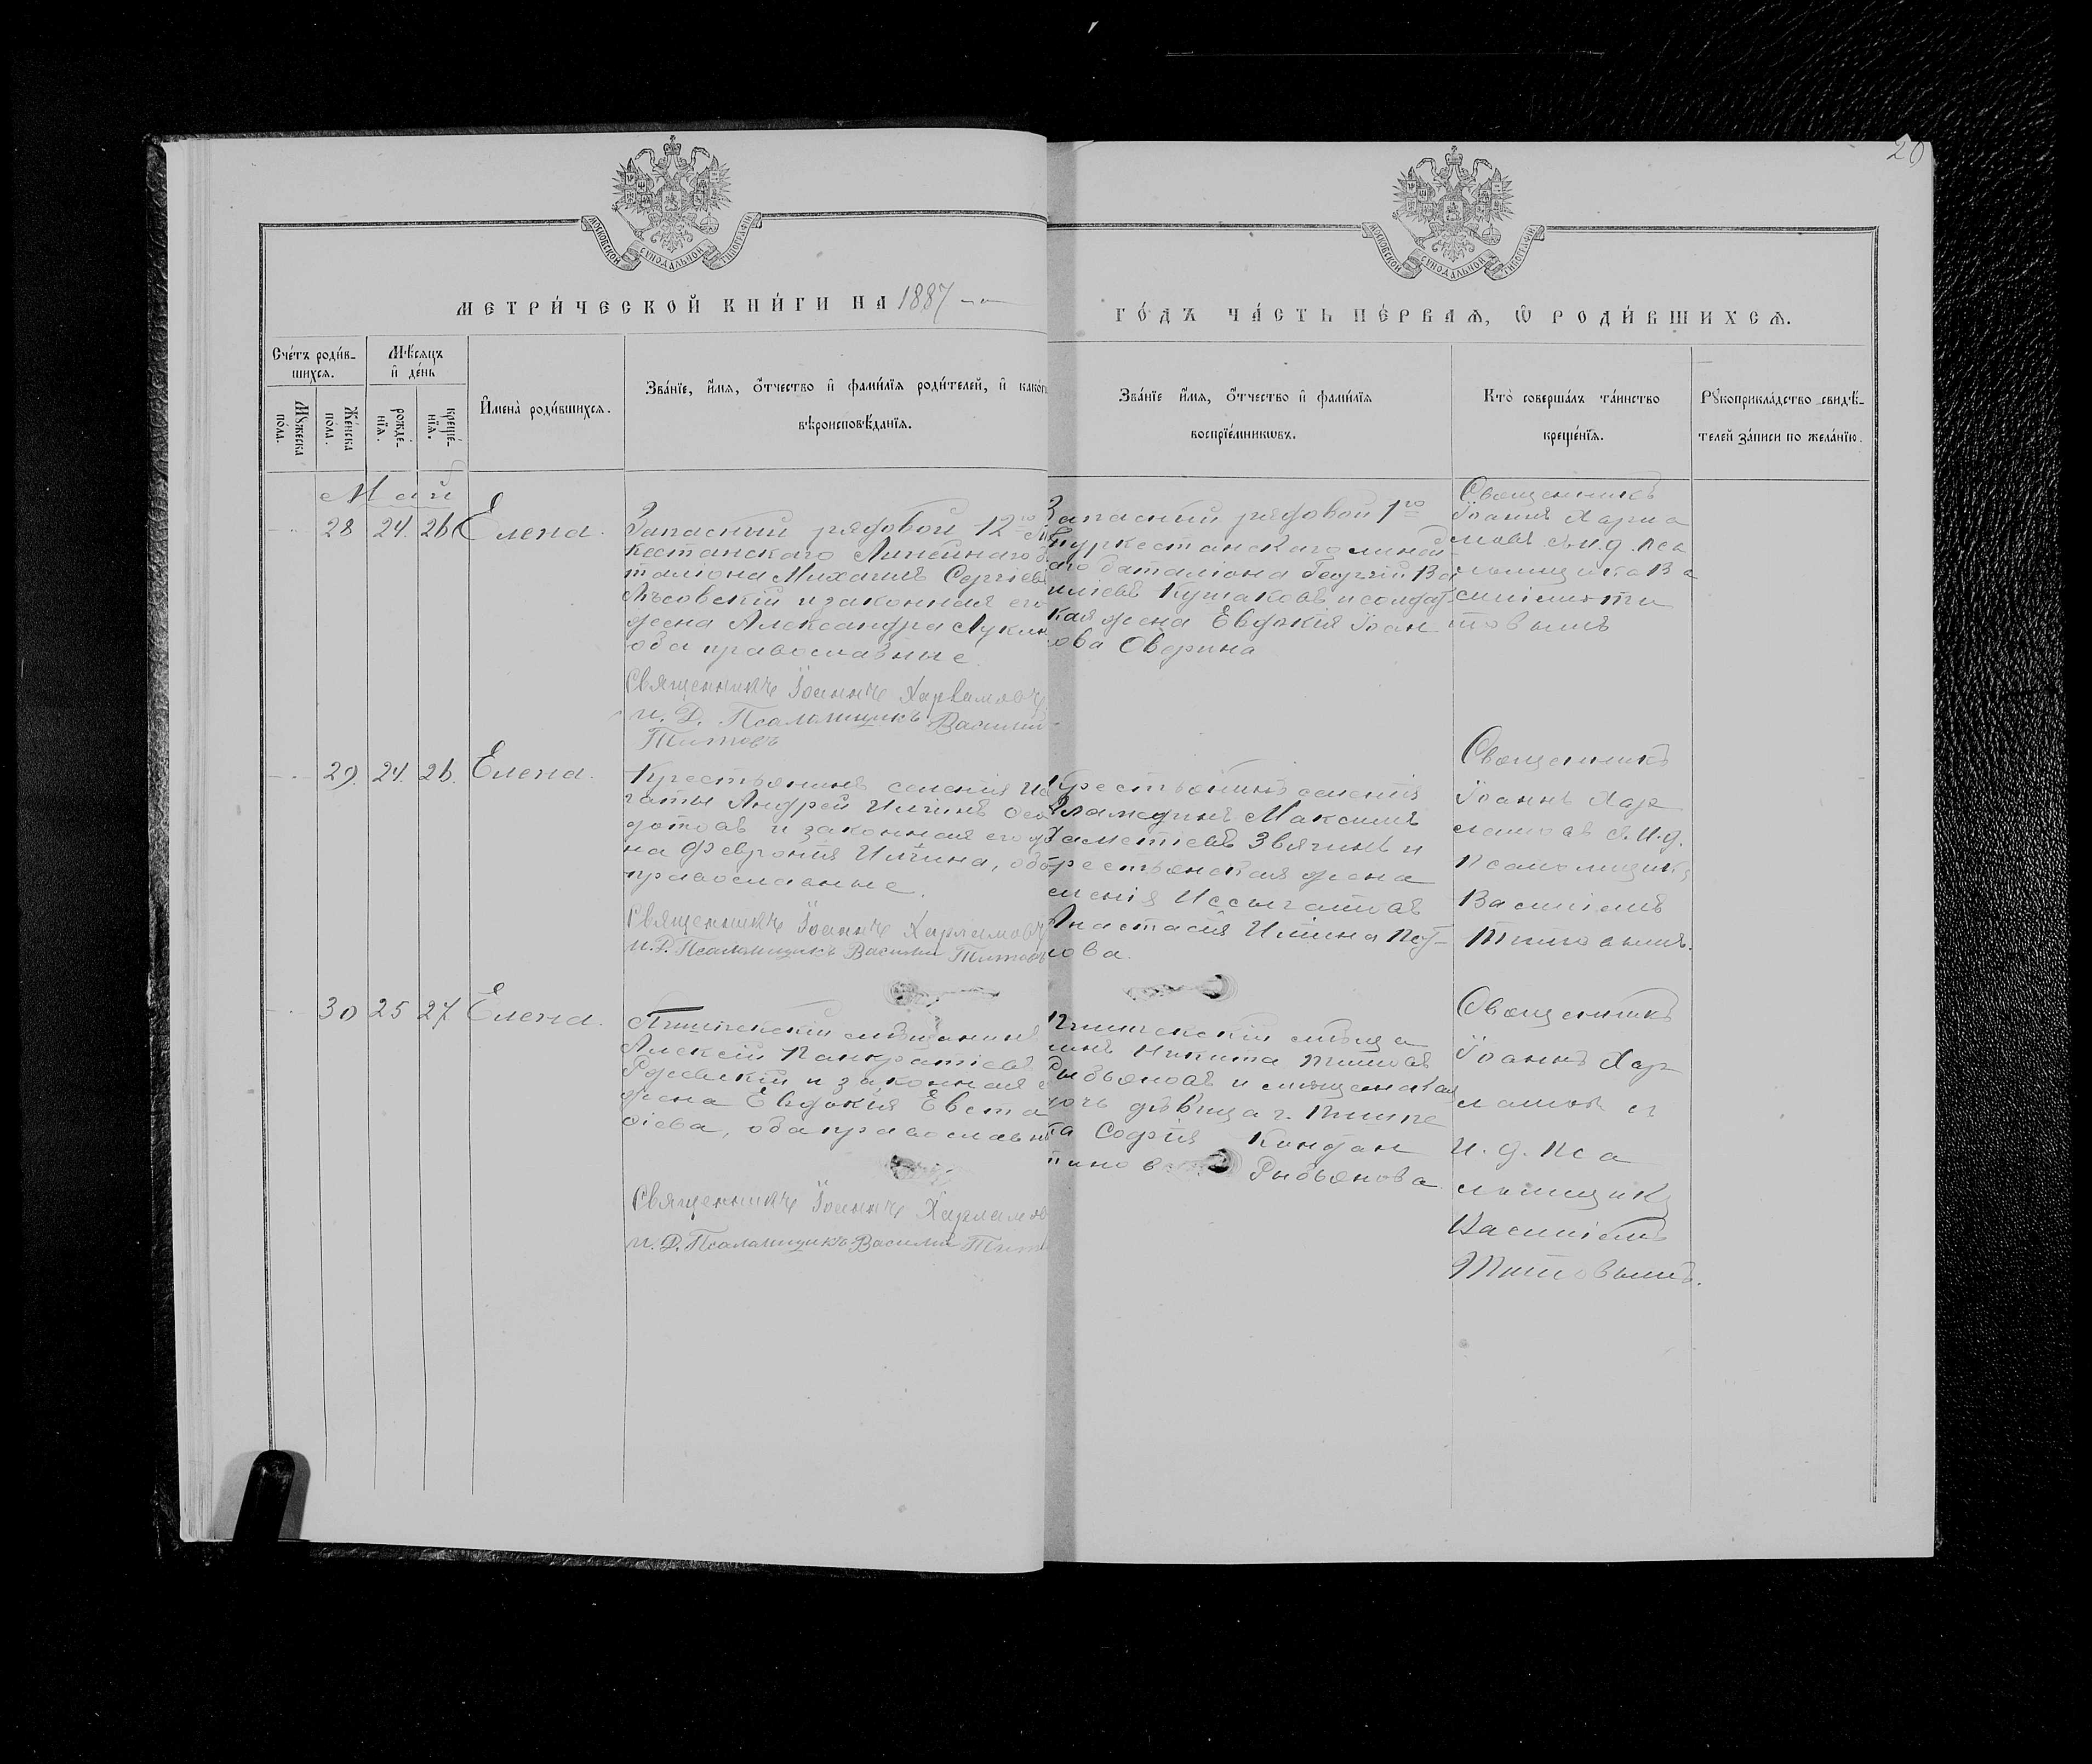 20
МОСКОВСКОЙ СѴНОДАЛЬНОЙ ТИПОГРАФІИ
МОСКОВСКОЙ СѴНОДАЛЬНОЙ ТИПОГРАФІИ
МЕТРИ́ЧЕСКОЙ КНИ́ГИ НА 1887
ГО́ДЪ ЧА́СТЬ ПЕ́РВАѦ, Ѡ҆ РОДИ́ВШИХСѦ.
Сче́тъ роди́в-
шихсѧ.
Мѣ́сѧцъ
и҆ де́нь
Мꙋ́жеска
по́ла.
Же́нска
по́ла.
рожде́-
нїѧ.
креще́-
нїѧ.
И҆мена̀ роди́вшихсѧ.
Зва́нїе, и҆́мѧ, ѻ҆́тчество и҆ фами́лїѧ роди́телей, и҆ како́гѡ
вѣроисповѣ́данїѧ.
Зва́нїе и҆́мѧ, ѻ҆́тчество и҆ фами́лїѧ
воспрїе́мникѡвъ.
Кто̀ соверша́лъ та́инство
креще́нїѧ.
Рꙋкоприкла́дство свидѣ́-
телей за́писи по жела́нїю.
Май
28 24. 26 Елена.
Запасный рядовой 12го
кестанскаго Линейнаго
таліона Михаилъ Сергіевъ
Лѣсовскій и законная его
жена Александра
оба православные
Священникъ Іоаннъ Харламовъ
и. д. Псаломщикъ Василій
Титовъ
Запасный рядовой 1го
туркестанскаго линей
аго баталіона Георгій Ва
иліевъ Кушаковъ и солдат
кая жена Евдокія Іоан
ова Сверина
Священникъ
Іоаннъ Харла
мовъ съ и. д. пса
ломщика Ва
силіемъ Ти
товымъ
29. 24. 26. Елена.
Крестьянинъ селенія
гаты Андрей Ильинъ
дотовъ и законная его
на Февронія Ильина, оба
православные.
Священникъ Іоаннъ Харламовъ
и. д. Псаломщикъ Василій Титовъ
Крестьянинъ селенія
Аламединъ Максимъ
Звягинъ и
крестьянская жена
еленія Иссыгатовъ
Анастасія Ильина
ова.
Священникъ
Іоаннъ Хар
ламовъ съ и. д.
псаломщик
Василіемъ
Титовымъ.
30 25 27 Елена.
Пишпекскій мѣщанинъ
Алексій Панкратіевъ
Ржевскій и законная е
жена Евдокія Евста
фіева, оба православн
Священникъ Іоаннъ Харламов
и. д. Псаломщикъ Василій Тит
Пишпекскій мѣща
нинъ Никита Титовъ
Рыбьяновъ и мѣщанская
дочь дѣвица г. Пишпе
ка Софія Кондан
тинова Рыбьянова
Священникъ
Іоаннъ Хар
ламовъ съ
и. д. пса
ломщик
Василіемъ
Титовымъ.